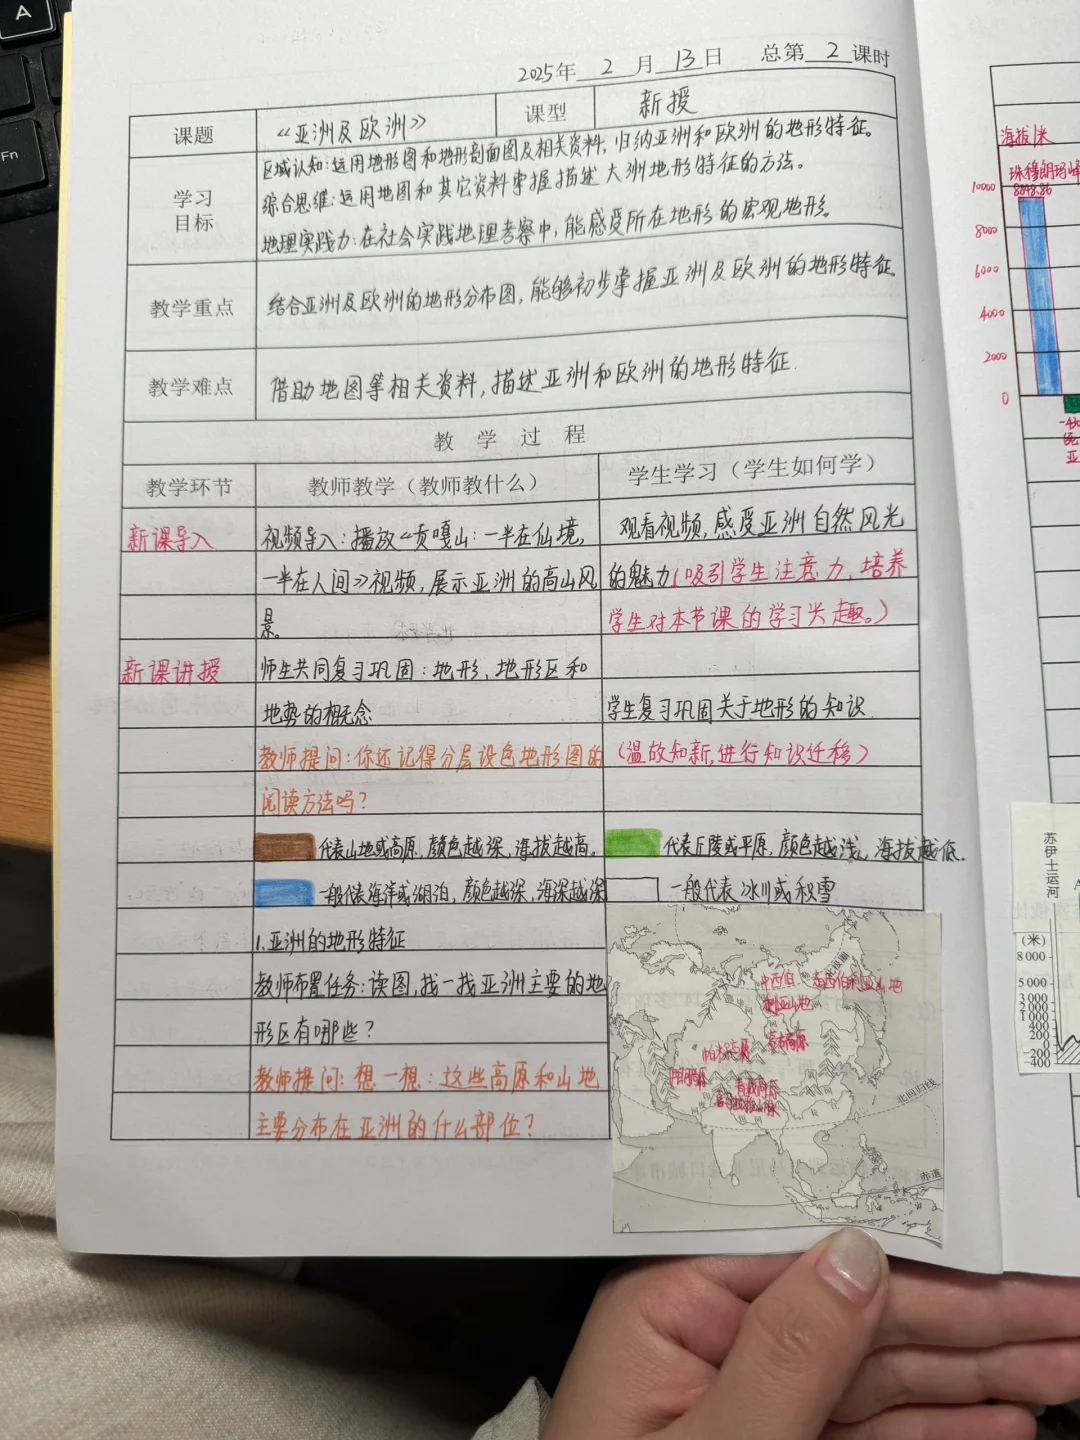 2025年 2 月 13 日 总第 2 课时
课题 《亚洲及欧洲》 课型 新授
学习目标
区域认知:运用地形图和地形剖面图及相关资料,归纳亚洲和欧洲的地形特征。
综合思维:运用地图和其它资料掌握描述大洲地形特征的方法。
地理实践力:在社会实践地理考察中,能感受所在地形的宏观地形。
教学重点 结合亚洲及欧洲的地形分布图,能够初步掌握亚洲及欧洲的地形特征
教学难点 借助地图等相关资料,描述亚洲和欧洲的地形特征.
教 学 过 程
教学环节 教师教学(教师教什么) 学生学习(学生如何学)
新课导入 视频导入:播放《贡嘎山:一半在仙境, 观看视频,感受亚洲自然风光
一半在人间》视频,展示亚洲的高山风 的魅力(吸引学生注意力,培养
景。 学生对本节课的学习兴趣。)
新课讲授 师生共同复习巩固:地形,地形区和
地势的概念 学生复习巩固关于地形的知识
教师提问:你还记得分层设色地形图的 (温故知新,进行知识迁移)
阅读方法吗?
代表山地或高原,颜色越深,海拔越高。 代表丘陵或平原,颜色越浅,海拔越低.
一般代表海洋或湖泊,颜色越深,海深越深 一般代表冰川或积雪
1.亚洲的地形特征
教师布置任务:读图,找一找亚洲主要的地
形区有哪些?
教师提问:想一想:这些高原和山地
主要分布在亚洲的什么部位?
中西伯 东西伯利亚山地
利亚山地
蒙古高原
帕米尔高原
伊朗高原
青藏高原
喜马拉雅山脉
北回归线
赤道
海拔/米
珠穆朗玛峰
8848.86
10000
8000
6000
4000
2000
0
苏伊士运河
(米)
8 000
5 000
3 000
2 000
1 000
400
200
0
-200
-400
A
Fn